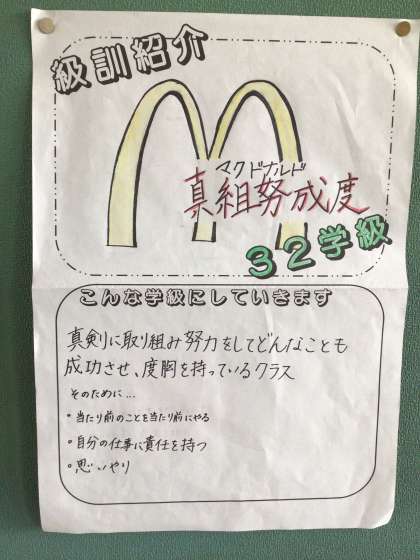 級訓紹介
マクドナルド
真組努成度
32学級
こんな学級にしていきます
真剣に取り組み努力をしてどんなことも
成功させ、度胸を持っているクラス
そのために…
・当たり前のことを当たり前にやる
・自分の仕事に責任を持つ
・思いやり